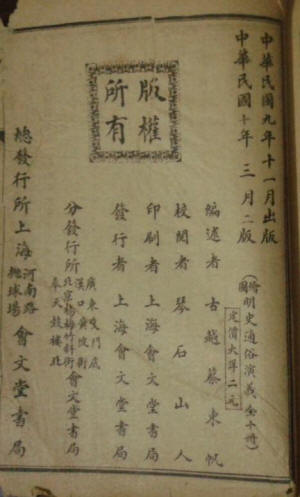 中華民國九年十一月出版
中華民國十年三月二版
繪圖
明史通俗演義
全十冊
定價大洋二元
版權所有
編述者 古越蔡東帆
校閱者 琴石山人
印刷者 上海會文堂書局
發行者 上海會文堂書局
分發行所
廣東雙門底
漢口黃陂街
北京楊梅竹斜街
奉天鼓樓北
會文堂書局
總發行所上海
河南路
拋球場
會文堂書局